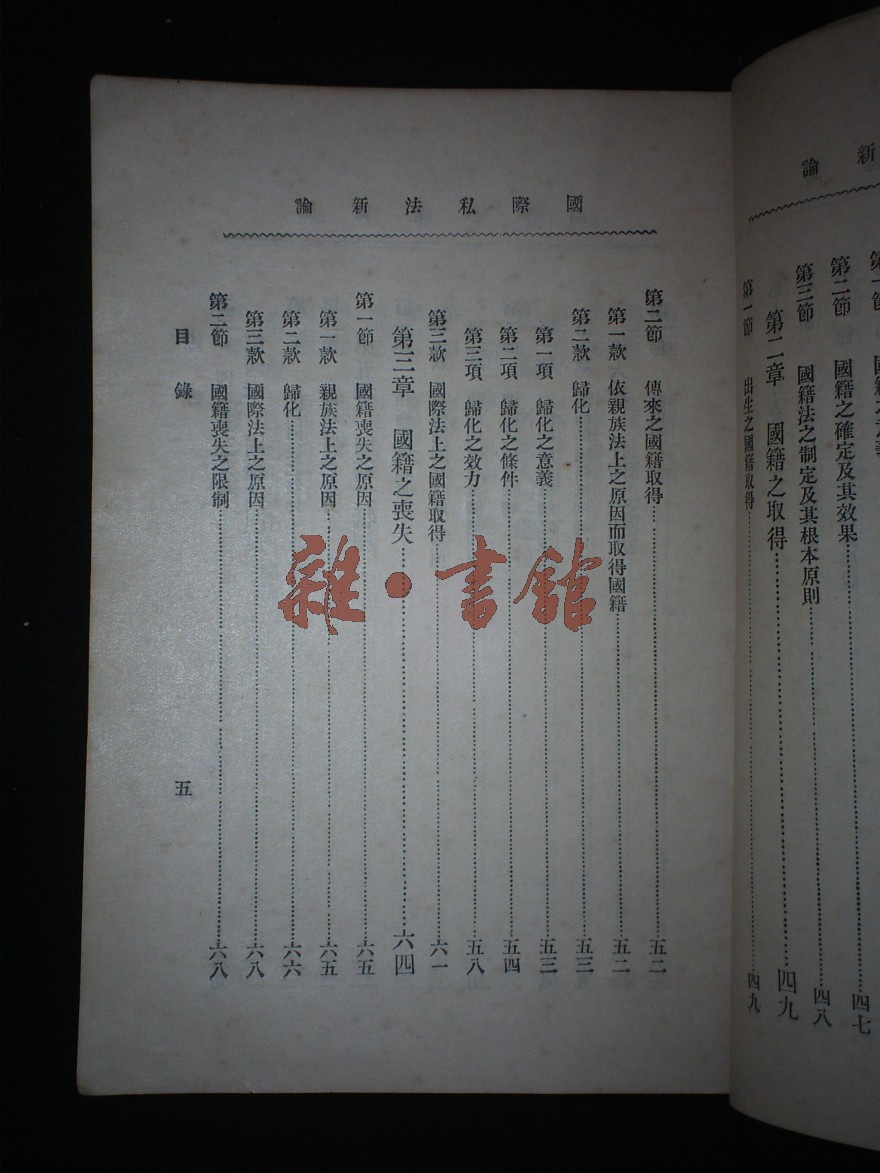 新論
第二節 國籍之確定及其效果……四七
第三節 國籍法之制定及其根本原則……四八
第二章 國籍之取得……四九
第一節 出生之國籍取得……四九
國際私法新論
第二節 傳來之國籍取得……五二
第一款 依親族法上之原因而取得國籍……五二
第二款 歸化……五三
第一項 歸化之意義……五三
第二項 歸化之條件……五四
第三項 歸化之效力……五八
第三款 國際法上之國籍取得……六一
第三章 國籍之喪失……六四
第一節 國籍喪失之原因……六五
第一款 親族法上之原因……六五
第二款 歸化……六六
第三款 國際法上之原因……六八
第二節 國籍喪失之限制……六八
目錄 五
雜·書館